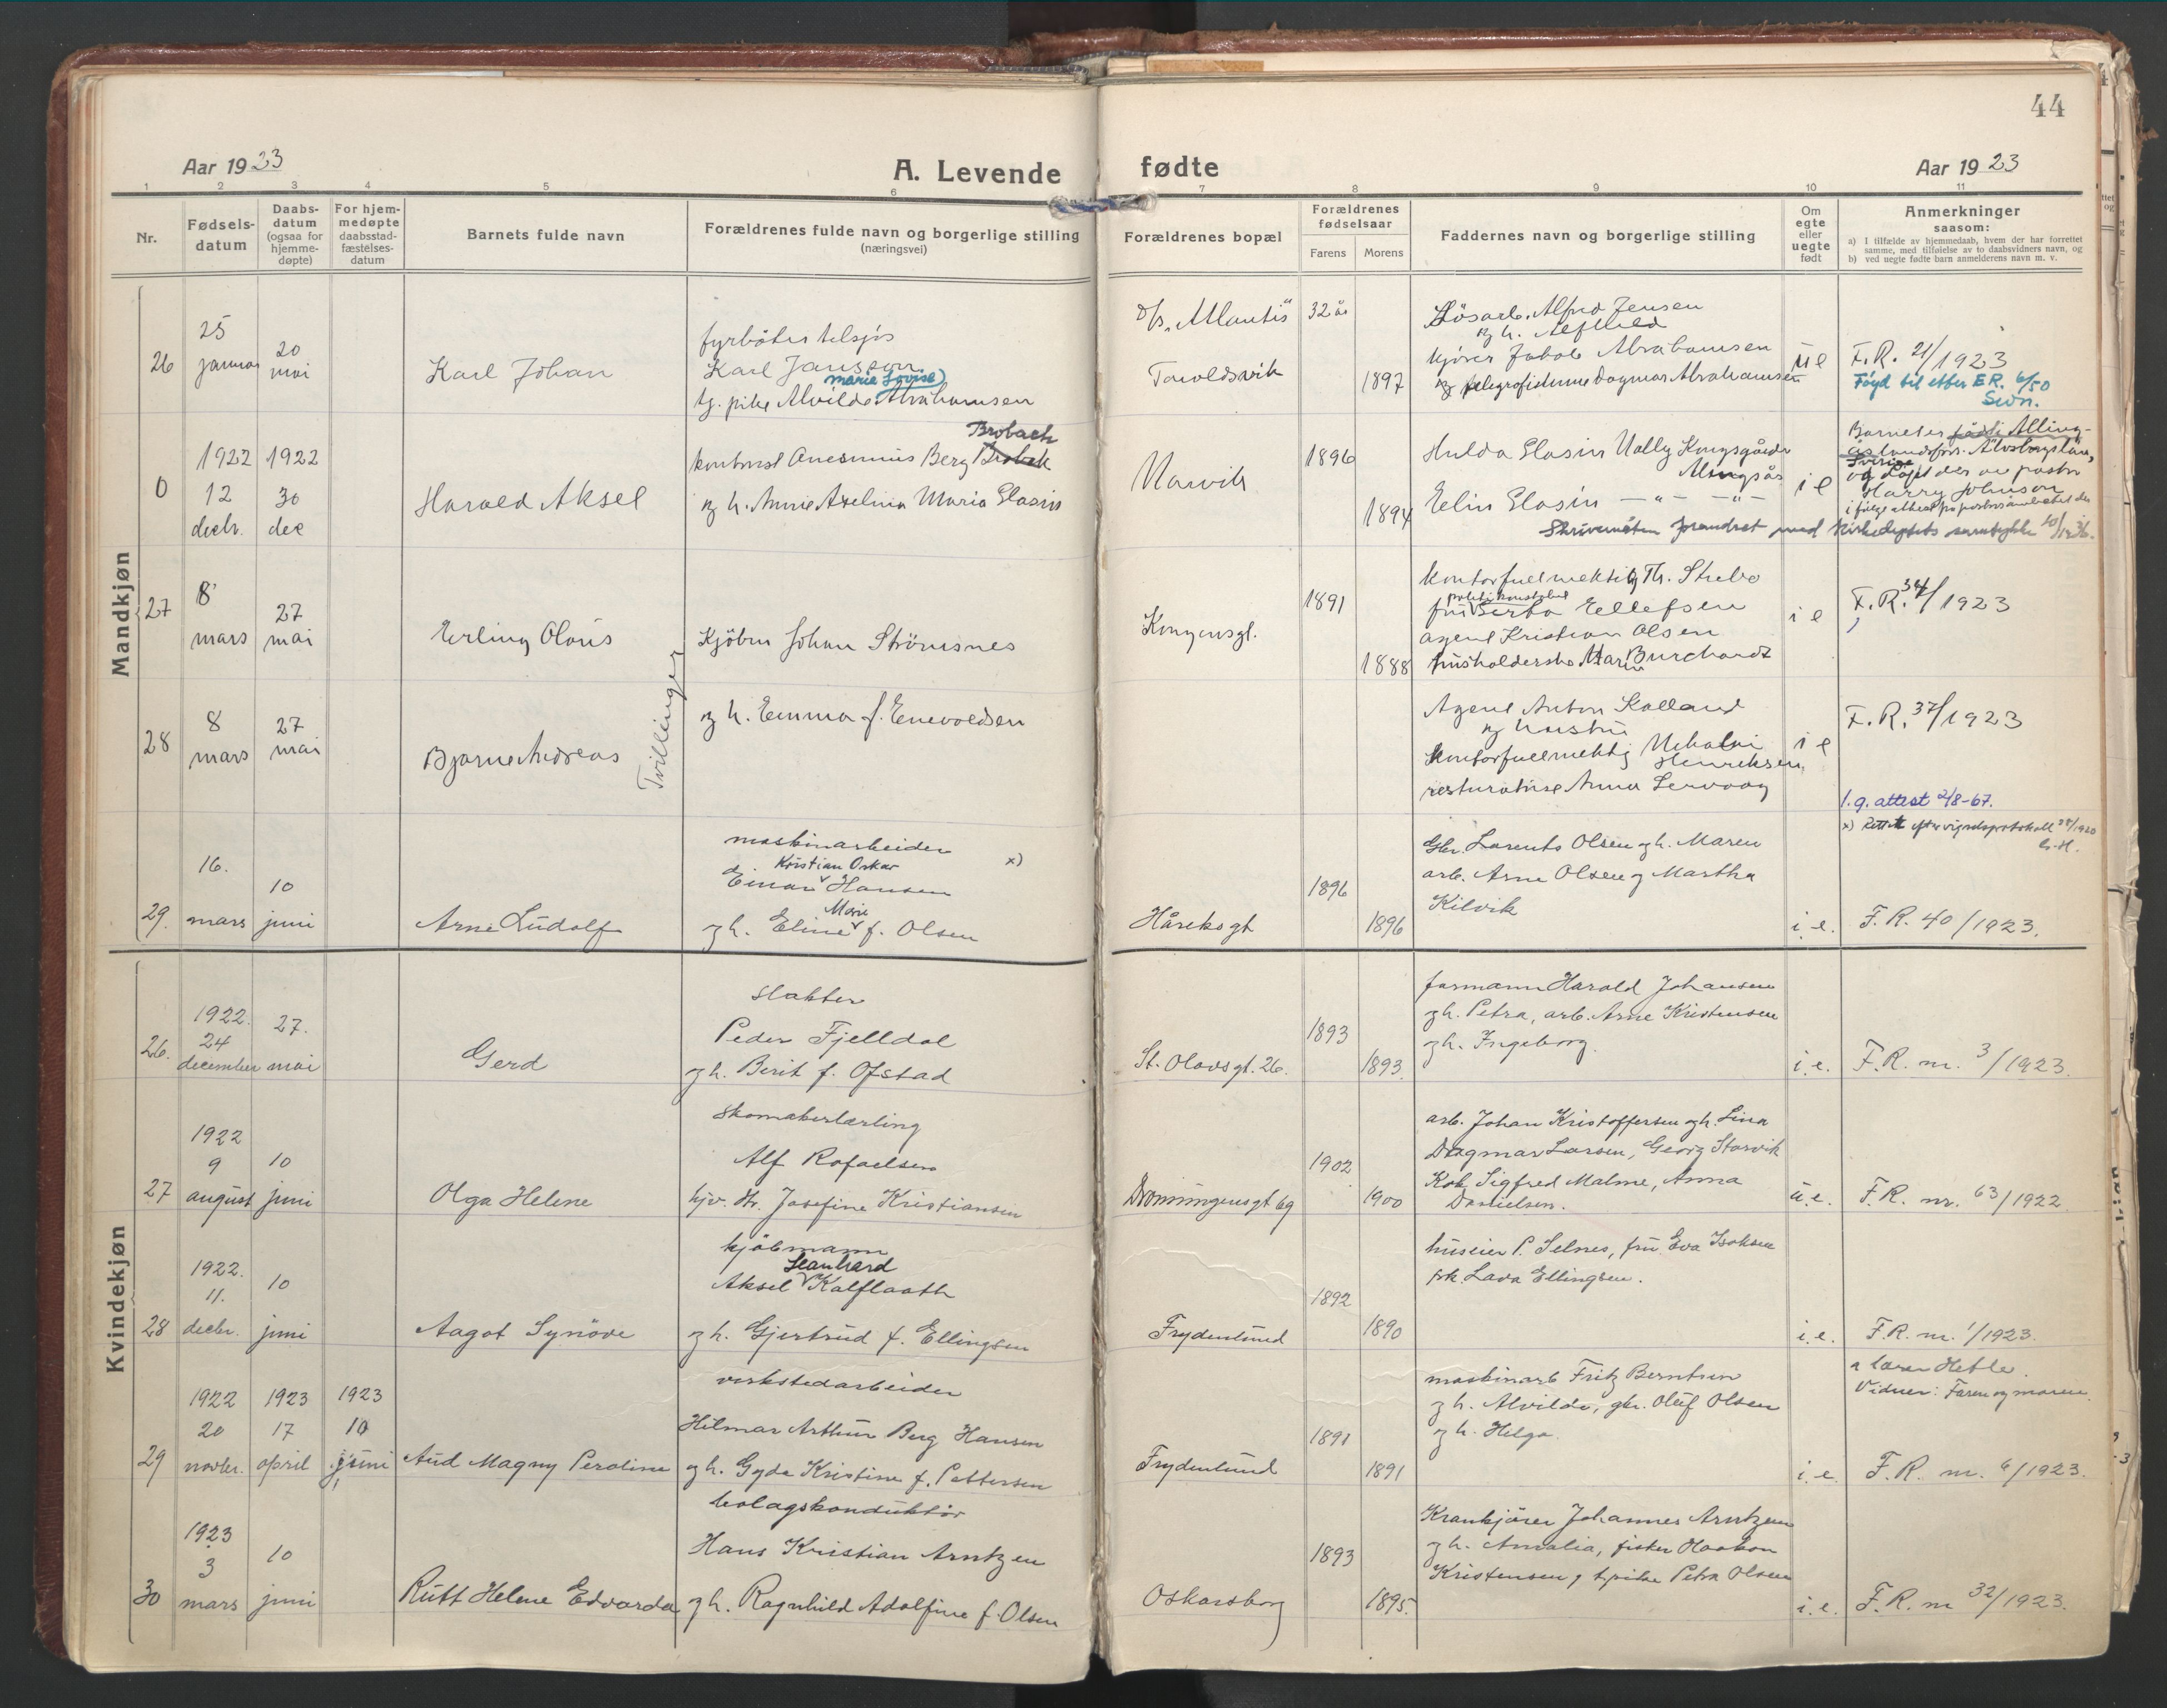 44
Aar 1923
A. Levende fødte
Aar 1923
1 2 3 4 5 6 7 8 9 10 11
Nr.
Fødsels-
datum
Daabs-
datum
(ogsaa for
hjemme-
døpte)
For hjem-
medøpte
daabsstad-
fæstelses-
datum
Barnets fulde navn
Forældrenes fulde navn og borgerlige stilling
(næringsvei)
Forældrenes bopæl
Forældrenes
fødselsaar
Farens
Morens
Faddernes navn og borgerlige stilling
Om
egte
eller
uegte
født
Anmerkninger
saasom:
a) I tilfælde av hjemmedaab, hvem der har forrettet
samme, med tilføielse av to daabsvidners navn, og
b) ved uegte fødte barn anmelderens navn m. v.
Mandkjøn
26
25
januar
20
mai
Karl Johan
fyrbøter tilsjøs
Karl Jansson
(Marie Lovise)
tj. pike Alvilde Abrahamsen
D/s. "Atlantis"
Taraldsvik
32 år
1897
Løsarb. Alfred Jensen
og h. Alfhild
kjører Jakob Abrahamsen
og telegrafistinne Dagmar Abrahamsen
u e
F.R. 21/1923
Føyd til etter F.R. 6/50
0
1922
12
decbr.
1922
30
dec
Harald Aksel
Brobach
kontorist Anesimius Berg Brobak
og h. Annie Axelina Maria Elasin
Narvik
1896
1894
Hulda Elasin Vally Kungsgården
Alingsås
Eelin Elasin — " — — " —
i e
Barnet er født i Alling-
sås landsförs. Älvsborgslän,
Sverige
og døpt der av pastor
Harry Johnson
Skrivemåten forandret med
27
8
mars
27
mai
Erling Olaus
Tvillinger
Kjøbm Johan Strømsnes
og h. Emma f. Enevoldsen
Kongensgt.
1891
1888
kontorfuldmektig Th. Strebo
politikonstabel
fru Berta Ellefsen
agent Kristian Olsen
husholderske Marie Burchardt
i e
F.R. 34/1923
28
8
mars
27
mai
Bjarne Andreas
Agent Anton Kolland
og hustru
Kontorfuldmektig Nikolai
Henriksen,
restauratrise Anna Lervaag
i e
F.R. 37/1923
l. g. attest 2/8-67.
29.
16.
mars
10
juni
Arne Ludolf
maskinarbeider
Kristian Oskar
Einar Hansen x)
Marie
og h. Eline f. Olsen
Håreksgt
1896
1896
Gbr. Lorents Olsen og h. Maren
arb. Arne Olsen og Martha
Kilvik
i. e.
x) Rettet efter vigselsprotokoll 28/1920
F. R. 40/1923.
Kvindekjøn
26.
1922.
24
december
27.
mai
Gerd
slakter
Peder Fjelldal
og h. Berit f. Ofstad
St. Olavsgt. 26.
1893
1893.
formann Harald Johansen
og h. Petra, arb. Arne Kristensen
og h. Ingeborg.
i. e.
F.R. nr. 3/1923.
27
1922
9
august
10
juni
Olga Helene
skomakerlærling
Alf Rafaelsen
hjv. dtr. Josefine Kristiansen
Dronningensgt 69
1902
1900
arb. Johan Kristoffersen og h. Lina
Dagmar Larsen, Georg Storvik
Kok Sigfred Malme, Anna
Danielsen.
u. e.
F.R. nr. 63/1922
28
1922.
11.
decbr.
10
juni
Aagot Synøve
kjøbmann
Leonhard
Aksel Kalflaath
og h. Gjertrud f. Ellingsen
Frydenlund
1892
1890
huseier P. Selnes, fru Eva Isaksen
frk. Lava Ellingsen.
i. e.
F. R. nr. 1/1923.
29
1922
20
novbr.
1923
17
april
1923
10
juni
Aud Magny Peroline
verkstedarbeider
Hilmar Arthur Berg Hansen
og h. Gyda Kristine f. Pettersen
Frydenlund
1891
1891
maskinarb Fritz Berntsen
og h. Alvilde, gbr. Oluf Olsen
og h. Helga.
i. e.
Vidner: Faren og moren.
F. R. nr. 6/1923.
30
1923
3
mars
10
juni
Rutt Helene Edvarda
bolagskonduktør
Hans Kristian Arntzen
og h. Ragnhild Adolfine f. Olsen
Oskarsborg
1893
1895.
Krankjører Johannes Arntzen
og h. Amalia, fisker Haakon
Kristensen og tj.pike Petra Olsen
i. e.
F. R. nr 32/1923.